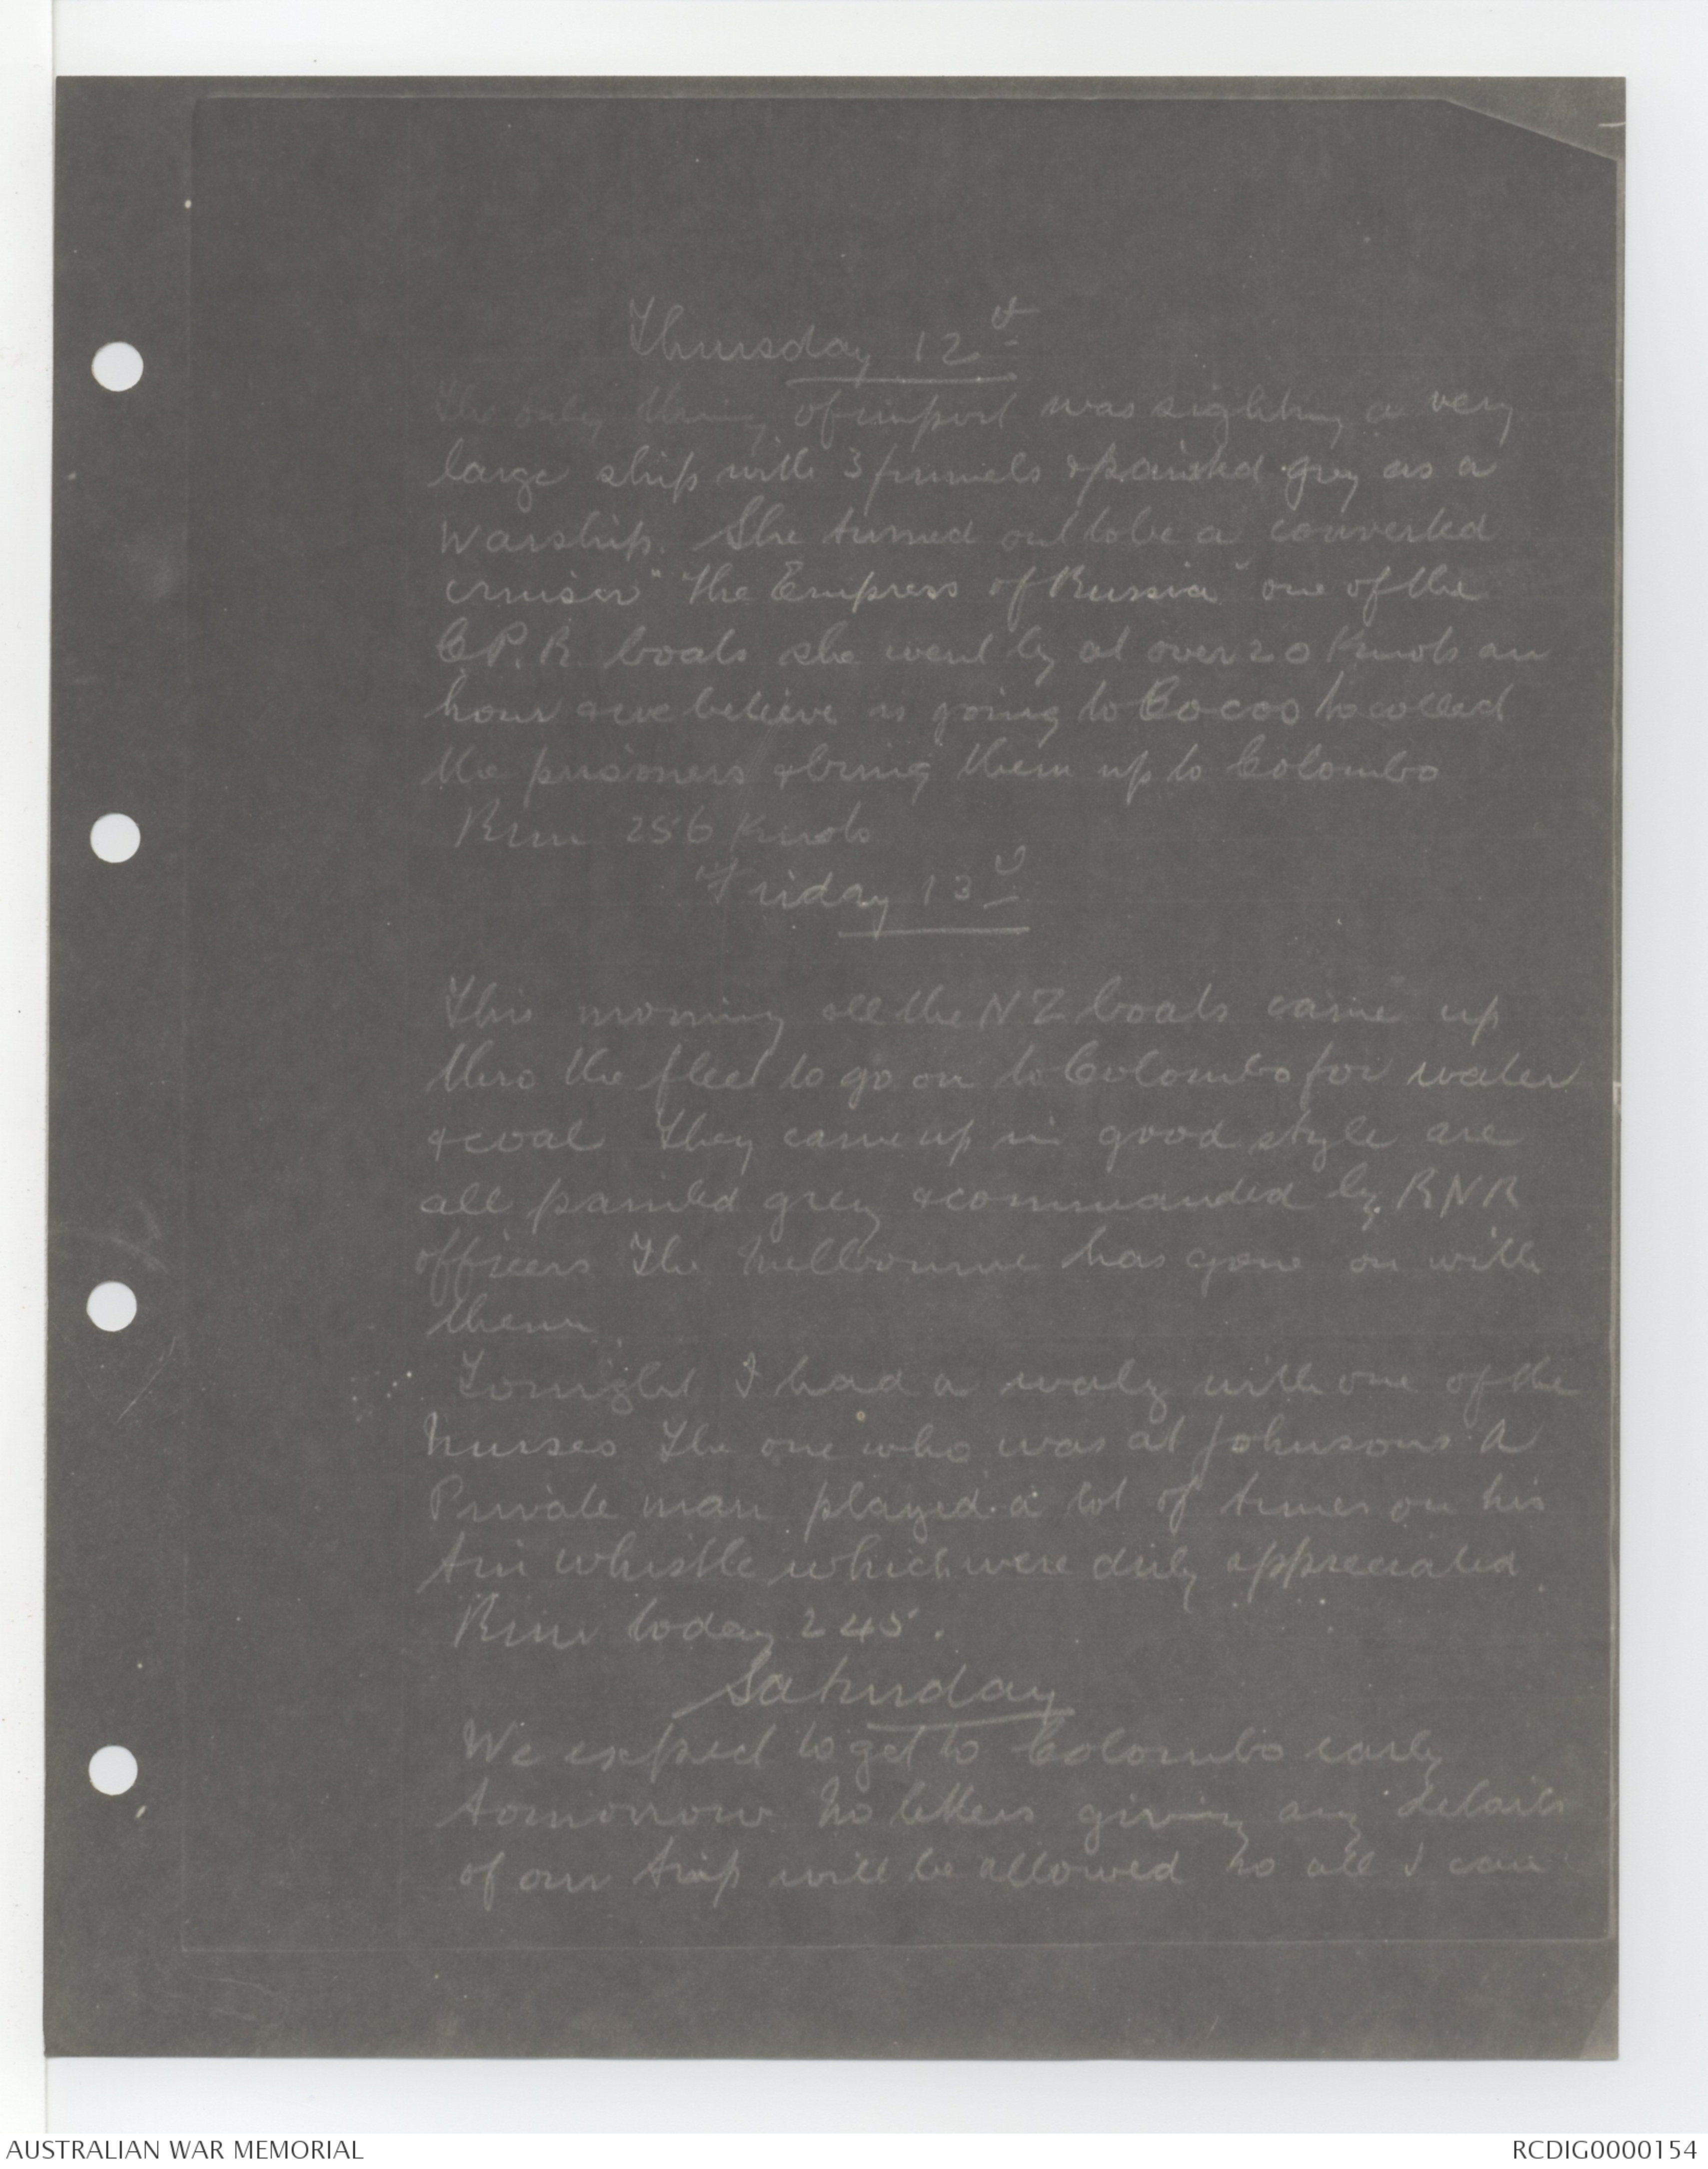 Thursday 12th
The only thing of import was sighting a very
large ship with 3 funnels & painted grey as a
Warship. She turned out to be a converted
cruiser "The Empress of Russia" one of the
C.P.R. boats she went by at over 20 Knots an
hour & we believe is going to Cocos to collect
the prisoners & bring them up to Colombo
Run 256 Knots
Friday 13th
This morning all the NZ boats came up
thro the fleet to go on to Colombo for water
& coal They came up in good style are
all painted grey & commanded by RNR
officers The Mellbourne has gone on with
them
Tonight I had a waltz with one of the
Nurses The one who was at Johnsons A
Private man played a lot of tunes on his
tin whistle which were duly appreciated
Run today 245.
Saturday
We expect to get to Colombo early
tomorrow No letters giving any details
of our trip will be allowed so all I can
AUSTRALIAN WAR MEMORIAL
RCDIG0000154